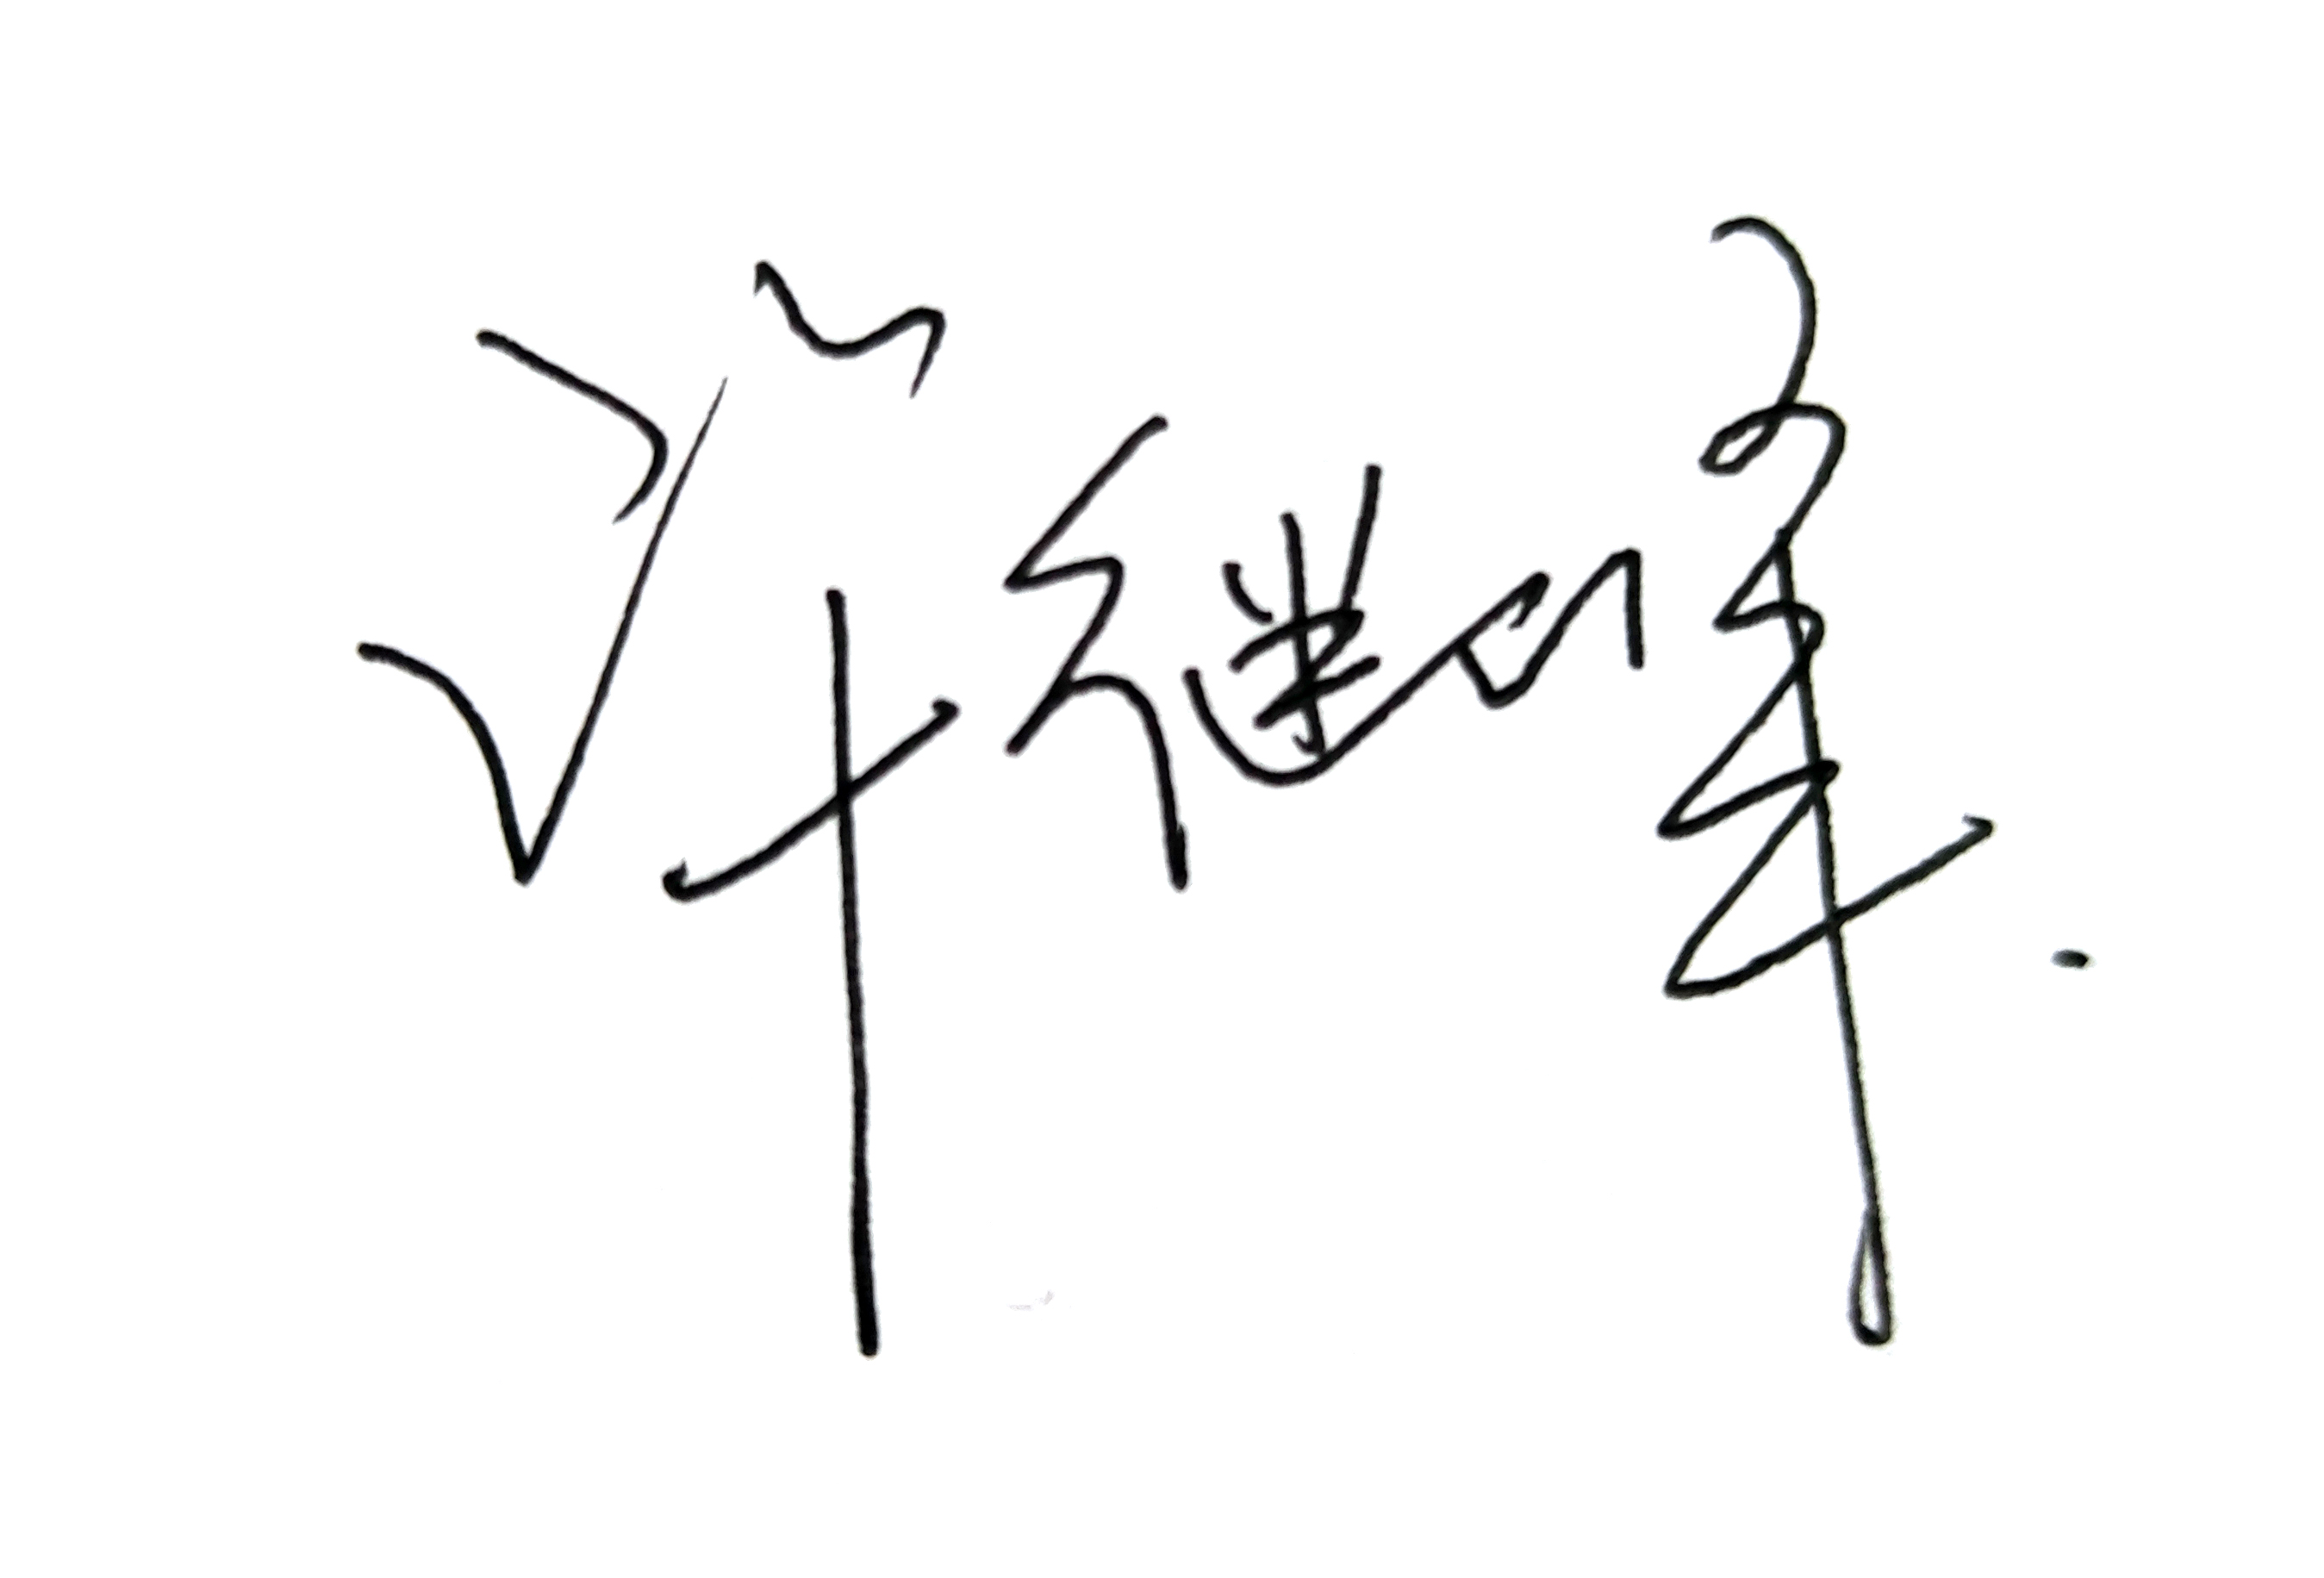 许继峰